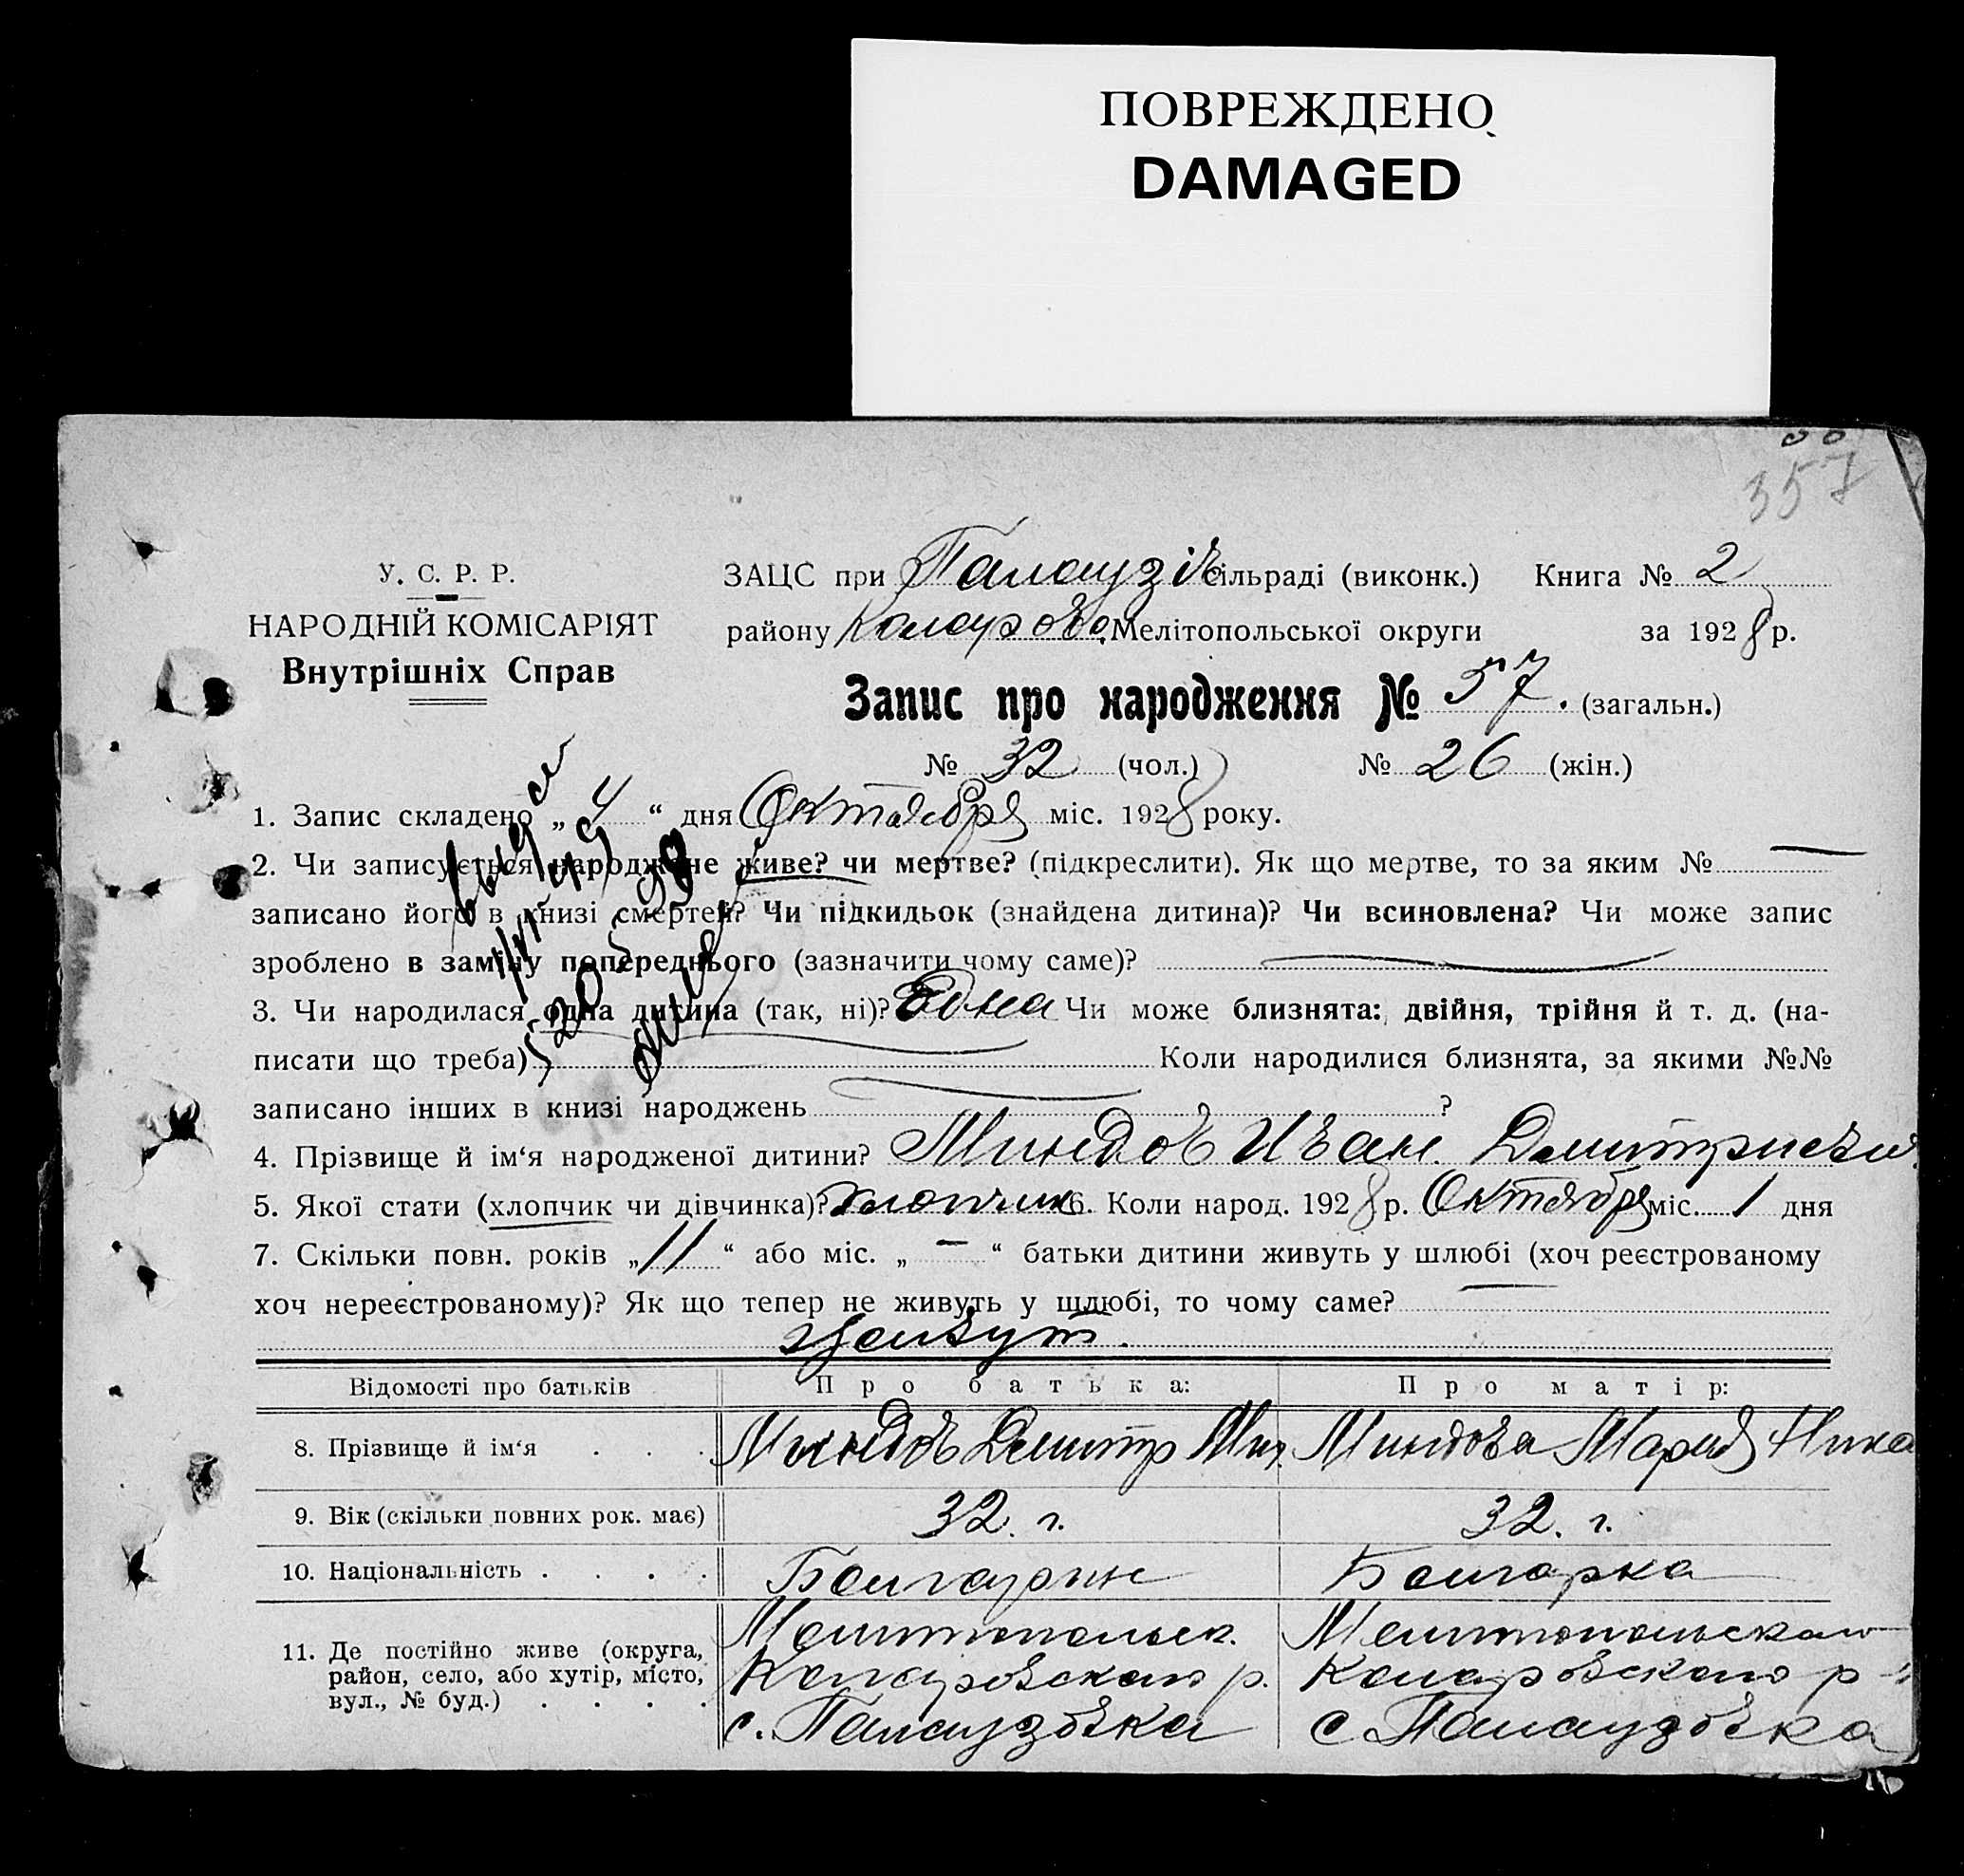 ПОВРЕЖДЕНО
DAMAGED
357
У. С. Р. Р.
НАРОДНІЙ КОМІСАРІЯТ
Внутрішніх Справ
ЗАЦС при Палаузів сільраді (виконк.) Книга № 2
району Коларово Мелітопольської округи за 1928 р.
Запис про народження № 57. (загальн.)
№ 32 (чол.) № 26 (жін.)
1. Запис складено „ 4 “ дня Октября міс. 1928 року.
2. Чи записується народжене живе? чи мертве? (підкреслити). Як що мертве, то за яким № —
записано його в книзі смертей? Чи підкидьок (знайдена дитина)? Чи всиновлена? Чи може запис
зроблено в заміну попереднього (зазначити чому саме)? —
3. Чи народилася одна дитина (так, ні)? Одна Чи може близнята: двійня, трійня й т. д. (на-
писати що треба) Коли народилися близнята, за якими №№
записано інших в книзі народжень ?
4. Прізвище й ім‘я народженої дитини? Миндов Иван Дмитриевич
5. Якої стати (хлопчик чи дівчинка)? хлопчик 6. Коли народ. 1928 р. Октября міс. 1 дня
7. Скільки повн. років „ 11 “ або міс. „ — “ батьки дитини живуть у шлюбі (хоч реєстрованому
хоч нереєстрованому)? Як що тепер не живуть у шлюбі, то чому саме? —
живут.
Відомості про батьків Про батька: Про матір:
8. Прізвище й ім‘я . . . Миндов Дмитр Мих. Миндова Мария Ника
9. Вік (скільки повних рок. має) 32. г. 32. г.
10. Національність . . . . Болгарин Болгарка
11. Де постійно живе (округа, район, село, або хутір, місто, вул., № буд.) . . . .
Мелитопольск. Мелитопольскаго
Коларовскаго р. Коларовскаго р
с. Палаузовка с Палаузовка